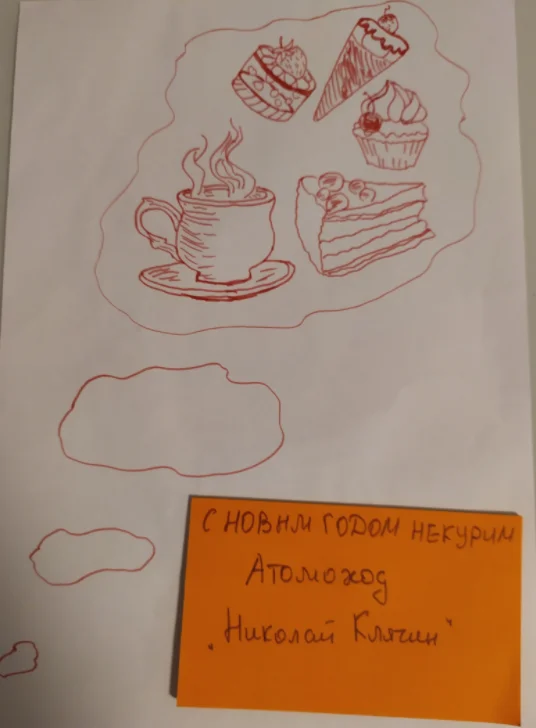 С НОВЫМ ГОДОМ НЕКУРИМ
Атомоход
"Николай Клягин"